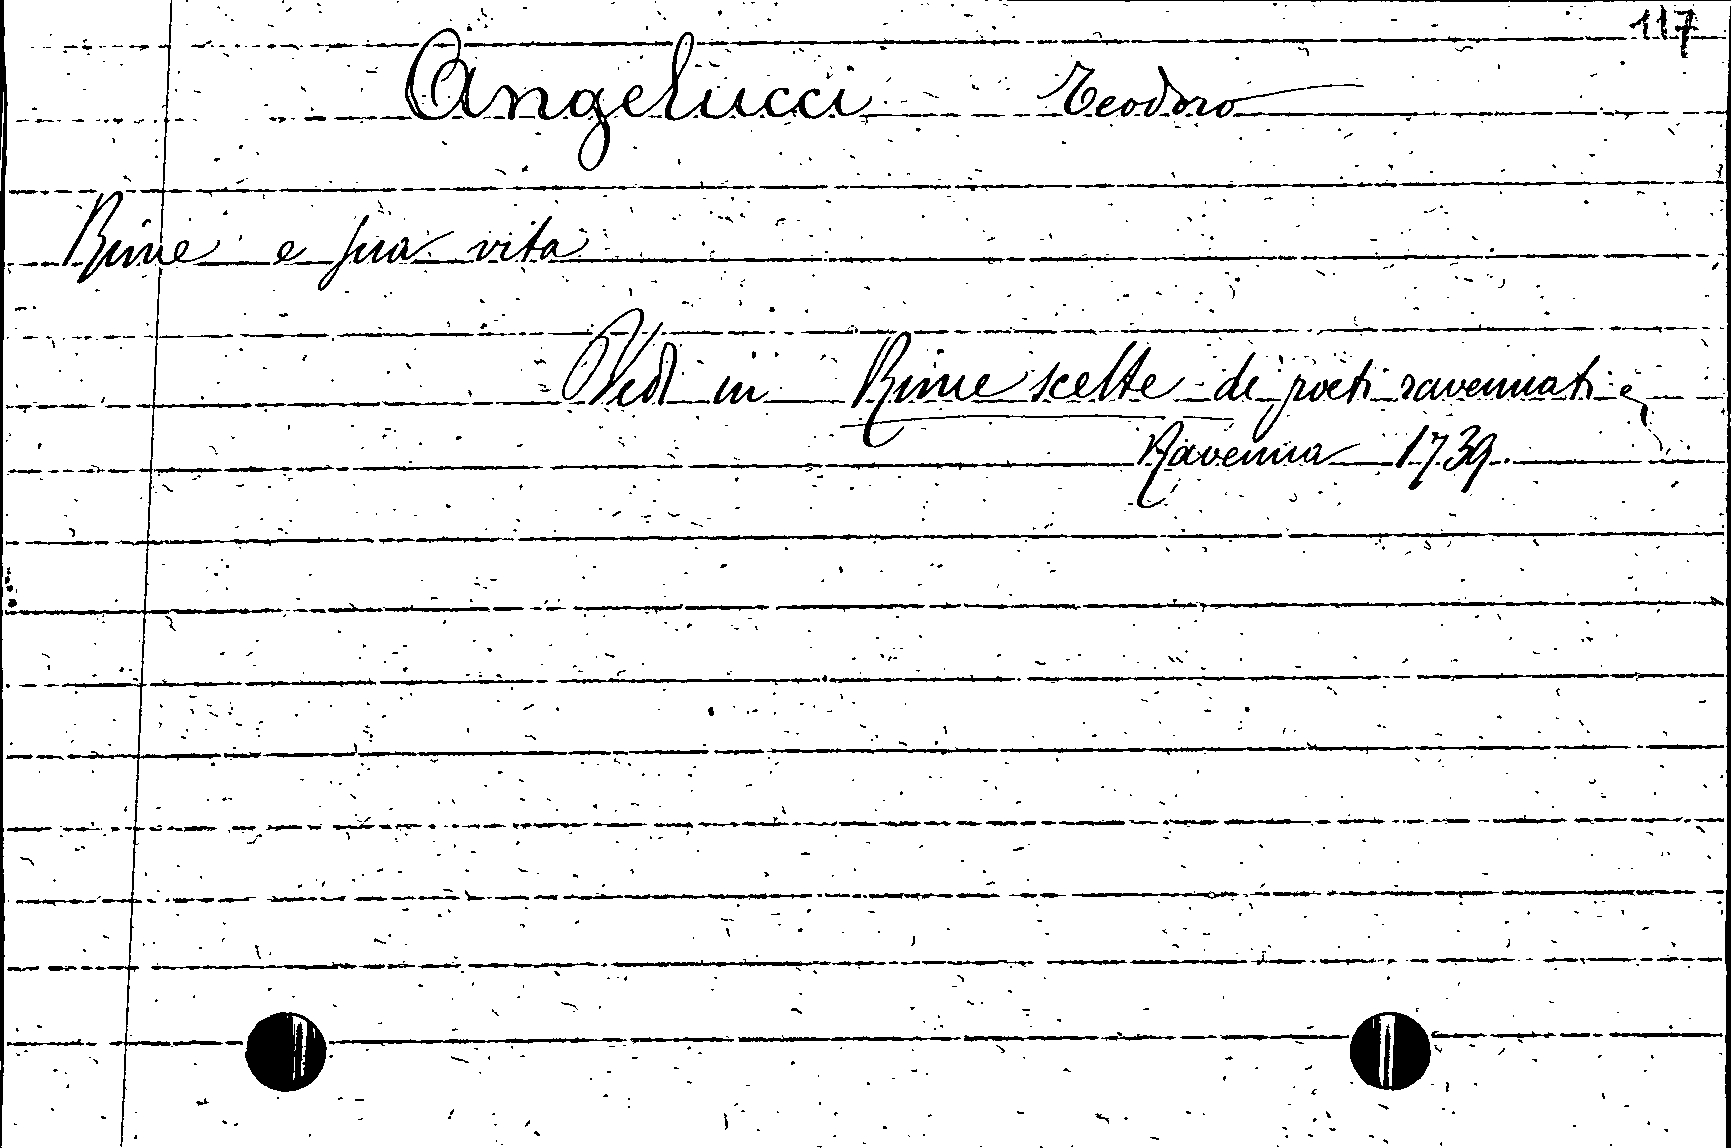 117
Angelucci Teodoro
Rime e sua vita
Vedi in Rime scelte di poeti ravennati
Ravenna 1739.